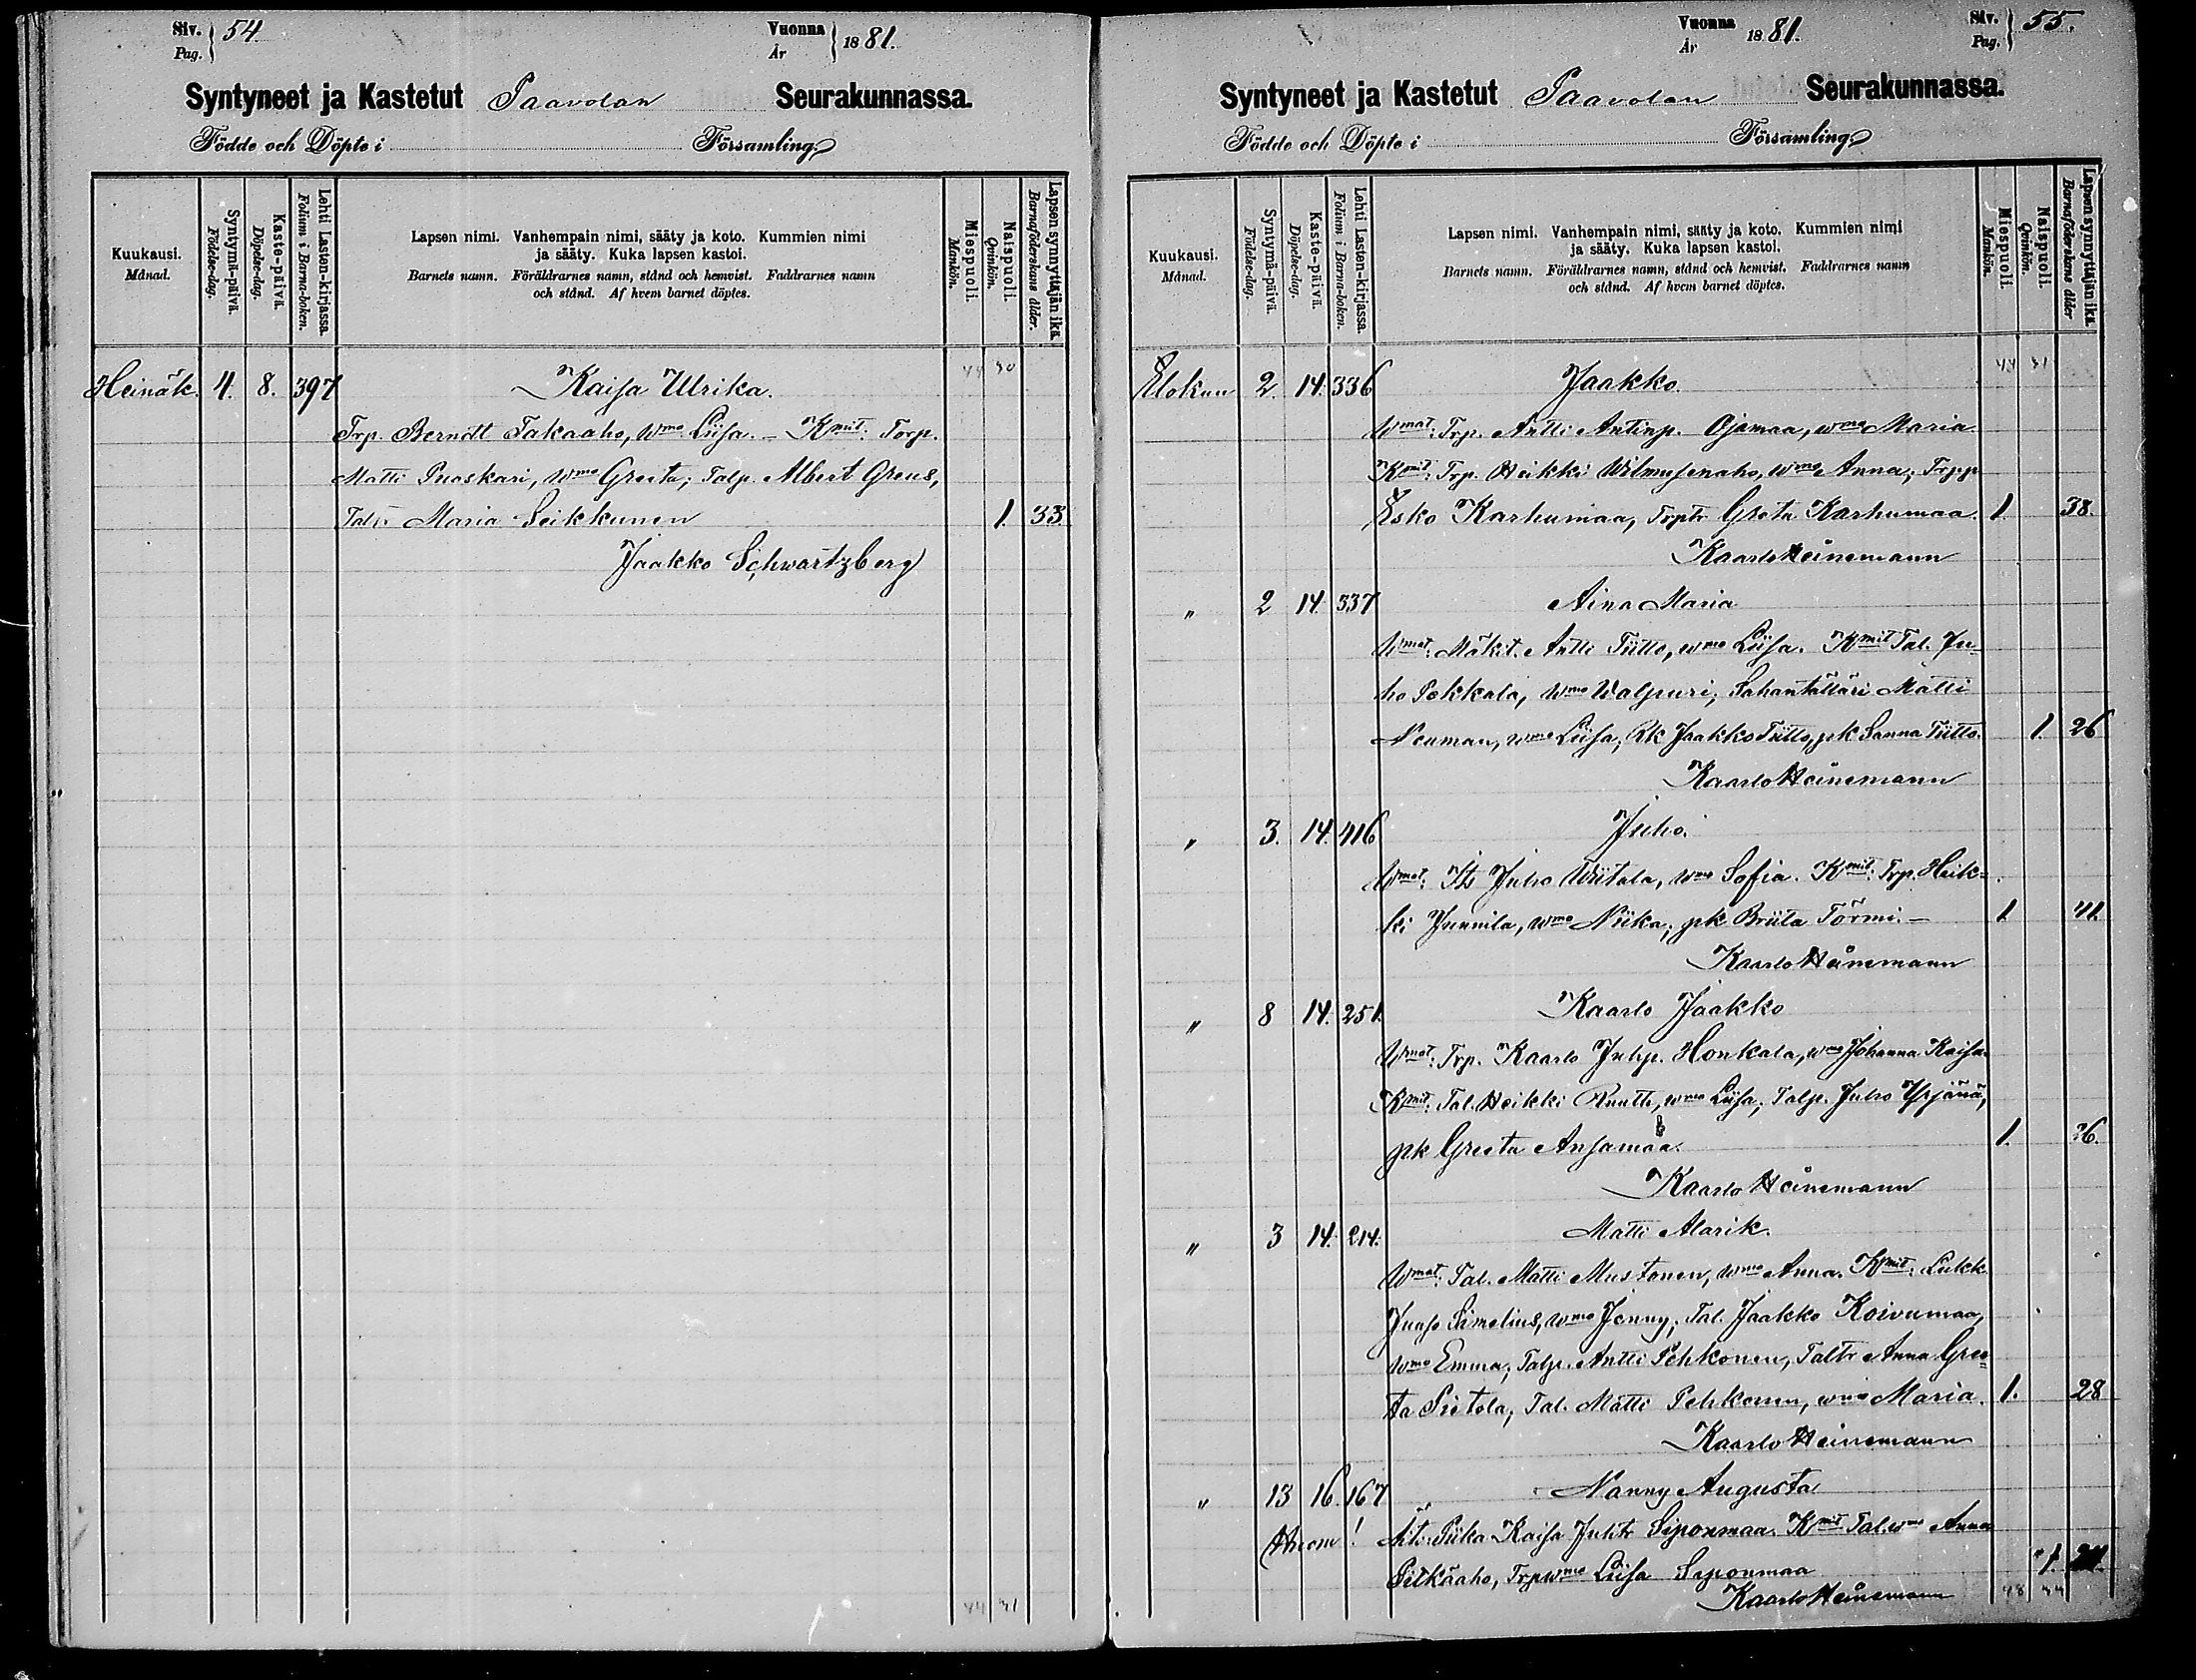 Siv. 54
Pag.
Vuonna 1881.
År
Syntyneet ja Kastetut Paavolan Seurakunnassa.
Födde och Döpte i Församling
Kuukausi. Månad.
Syntymä-päivä. Födelse-dag.
Kaste-päivä. Döpelse-dag.
Lehti Lasten-kirjassa. Folium i Barna-boken.
Lapsen nimi. Vanhempain nimi, sääty ja koto. Kummien nimi
ja sääty. Kuka lapsen kastoi.
Barnets namn. Föräldrarnes namn, stånd och hemvist. Faddrarnes namn
och stånd. Af hvem barnet döptes.
Miespuoli. Mankön.
Naispuoli. Qvinkön.
Lapsen synnyttäjän ikä. Barnaföderskans ålder.
44 30
Heinäk. 4. 8. 397 Kaisa Ulrika.
Trp. Berndt Takaaho, wmo Liisa. – Kmit: Torp.
Matti Puaskari, wmo Greeta; Talp. Albert Greus,
Maria Seikkunen 1. 33
Jaakko Schwartzberg
44 31
Vuonna 1881.
År
Siv. 55.
Pag.
Syntyneet ja Kastetut Paavolan Seurakunnassa.
Födde och Döpte i Församling
Kuukausi. Månad.
Syntymä-päivä. Födelse-dag.
Kaste-päivä. Döpelse-dag.
Lehti Lasten-kirjassa. Folium i Barna-boken.
Lapsen nimi. Vanhempain nimi, sääty ja koto. Kummien nimi
ja sääty. Kuka lapsen kastoi.
Barnets namn. Föräldrarnes namn, stånd och hemvist. Faddrarnes namn
och stånd. Af hvem barnet döptes.
Miespuoli. Mankön.
Naispuoli. Qvinkön.
Lapsen synnyttäjän ikä. Barnaföderskans ålder
44 31
Elokuu 2. 14. 336 Jaakko.
Wmat: Trp. Antti Antinp. Ojamaa, wmo Maria
Kmit: Trp. Heikki Wilmusenaho, wmo Anna; Trpp
Esko Karhumaa, Trptr Greta Karhumaa. 1. 38.
Kaarlo Heinemann
" 2 14. 337 Aina Maria
Wmat: Mäkit. Antti Tiitto, wmo Liisa. Kmit Tal. Ju-
ho Pekkala, wmo Walpuri; Sahanttäri Matti
Neuman, wmo Liisa; Rk Jaakko Tiitto, pk Sanna Tiitto. 1. 26
Kaarlo Heinemann
" 3. 14. 416 Juho.
Wmat: Its Juho Wiitala, wmo Sofia. Kmit: Trp. Heik-
ki Junnila, wmo Niika; pk Briita Törmi. – 1 41.
Kaarlo Heinemann
" 8 14. 251. Kaarlo Jaakko
Wmat: Trp. Kaarlo Juhp. Honkala, wmo Johanna Kaisa.
Kmit: Tal. Heikki Ruutti, wmo Liisa; Talp. Juho Yrjänä,
pk Greeta Ansamaa. 1. 26.
Kaarlo Heinemann
" 3 14. 214. Matti Alarik.
Wmat: Tal. Matti Mustonen, wmo Anna. Kmit: Lukk.
Juuso Simelius, wmo Jenny; Tal. Jaakko Koivumaa,
wmo Emma; Talp. Antti Pehkonen, Taltr Anna Gree-
ta Pietola; Tal. Matti Pehkonen, wmo Maria. 1. 28
Kaarlo Heinemann
" 13 16. 167 Nanny Augusta
Huom! Äiti: Piika Kaisa Juhtr Siponmaa. Kmit Tal. wmo Anna
Pitkäaho, Trpwmo Liisa Siponmaa 1.
Kaarlo Heinemann 48 34